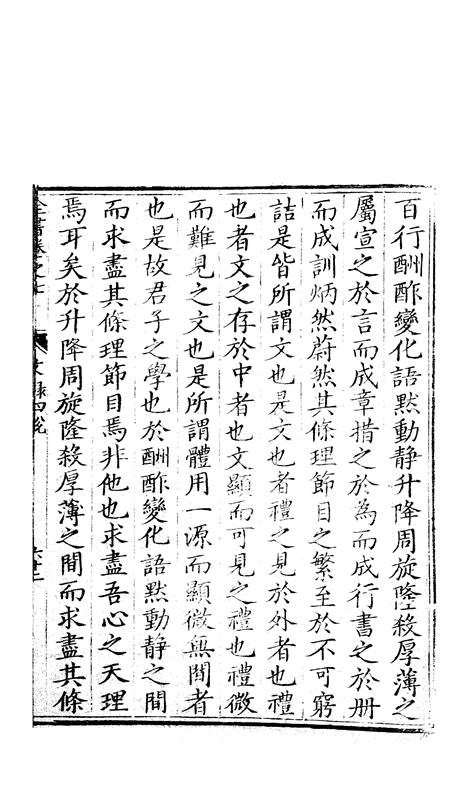 百行酬酢變化語默動静升降周旋隆殺厚薄之
屬宣之於言而成章措之於為而成行書之於冊
而成訓炳然蔚然其條理節目之繁至於不可窮
詰是皆所謂文也是文也者禮之見於外者也禮
也者文之存於中者也文顯而可見之禮也禮微
而難見之文也是所謂體用一源而顯微無間者
也是故君子之學也於酬酢變化語默動静之間
而求盡其條理節目焉非他也求盡吾心之天理
焉耳矣於升降周旋隆殺厚薄之間而求盡其條
全書卷之七
文録四說